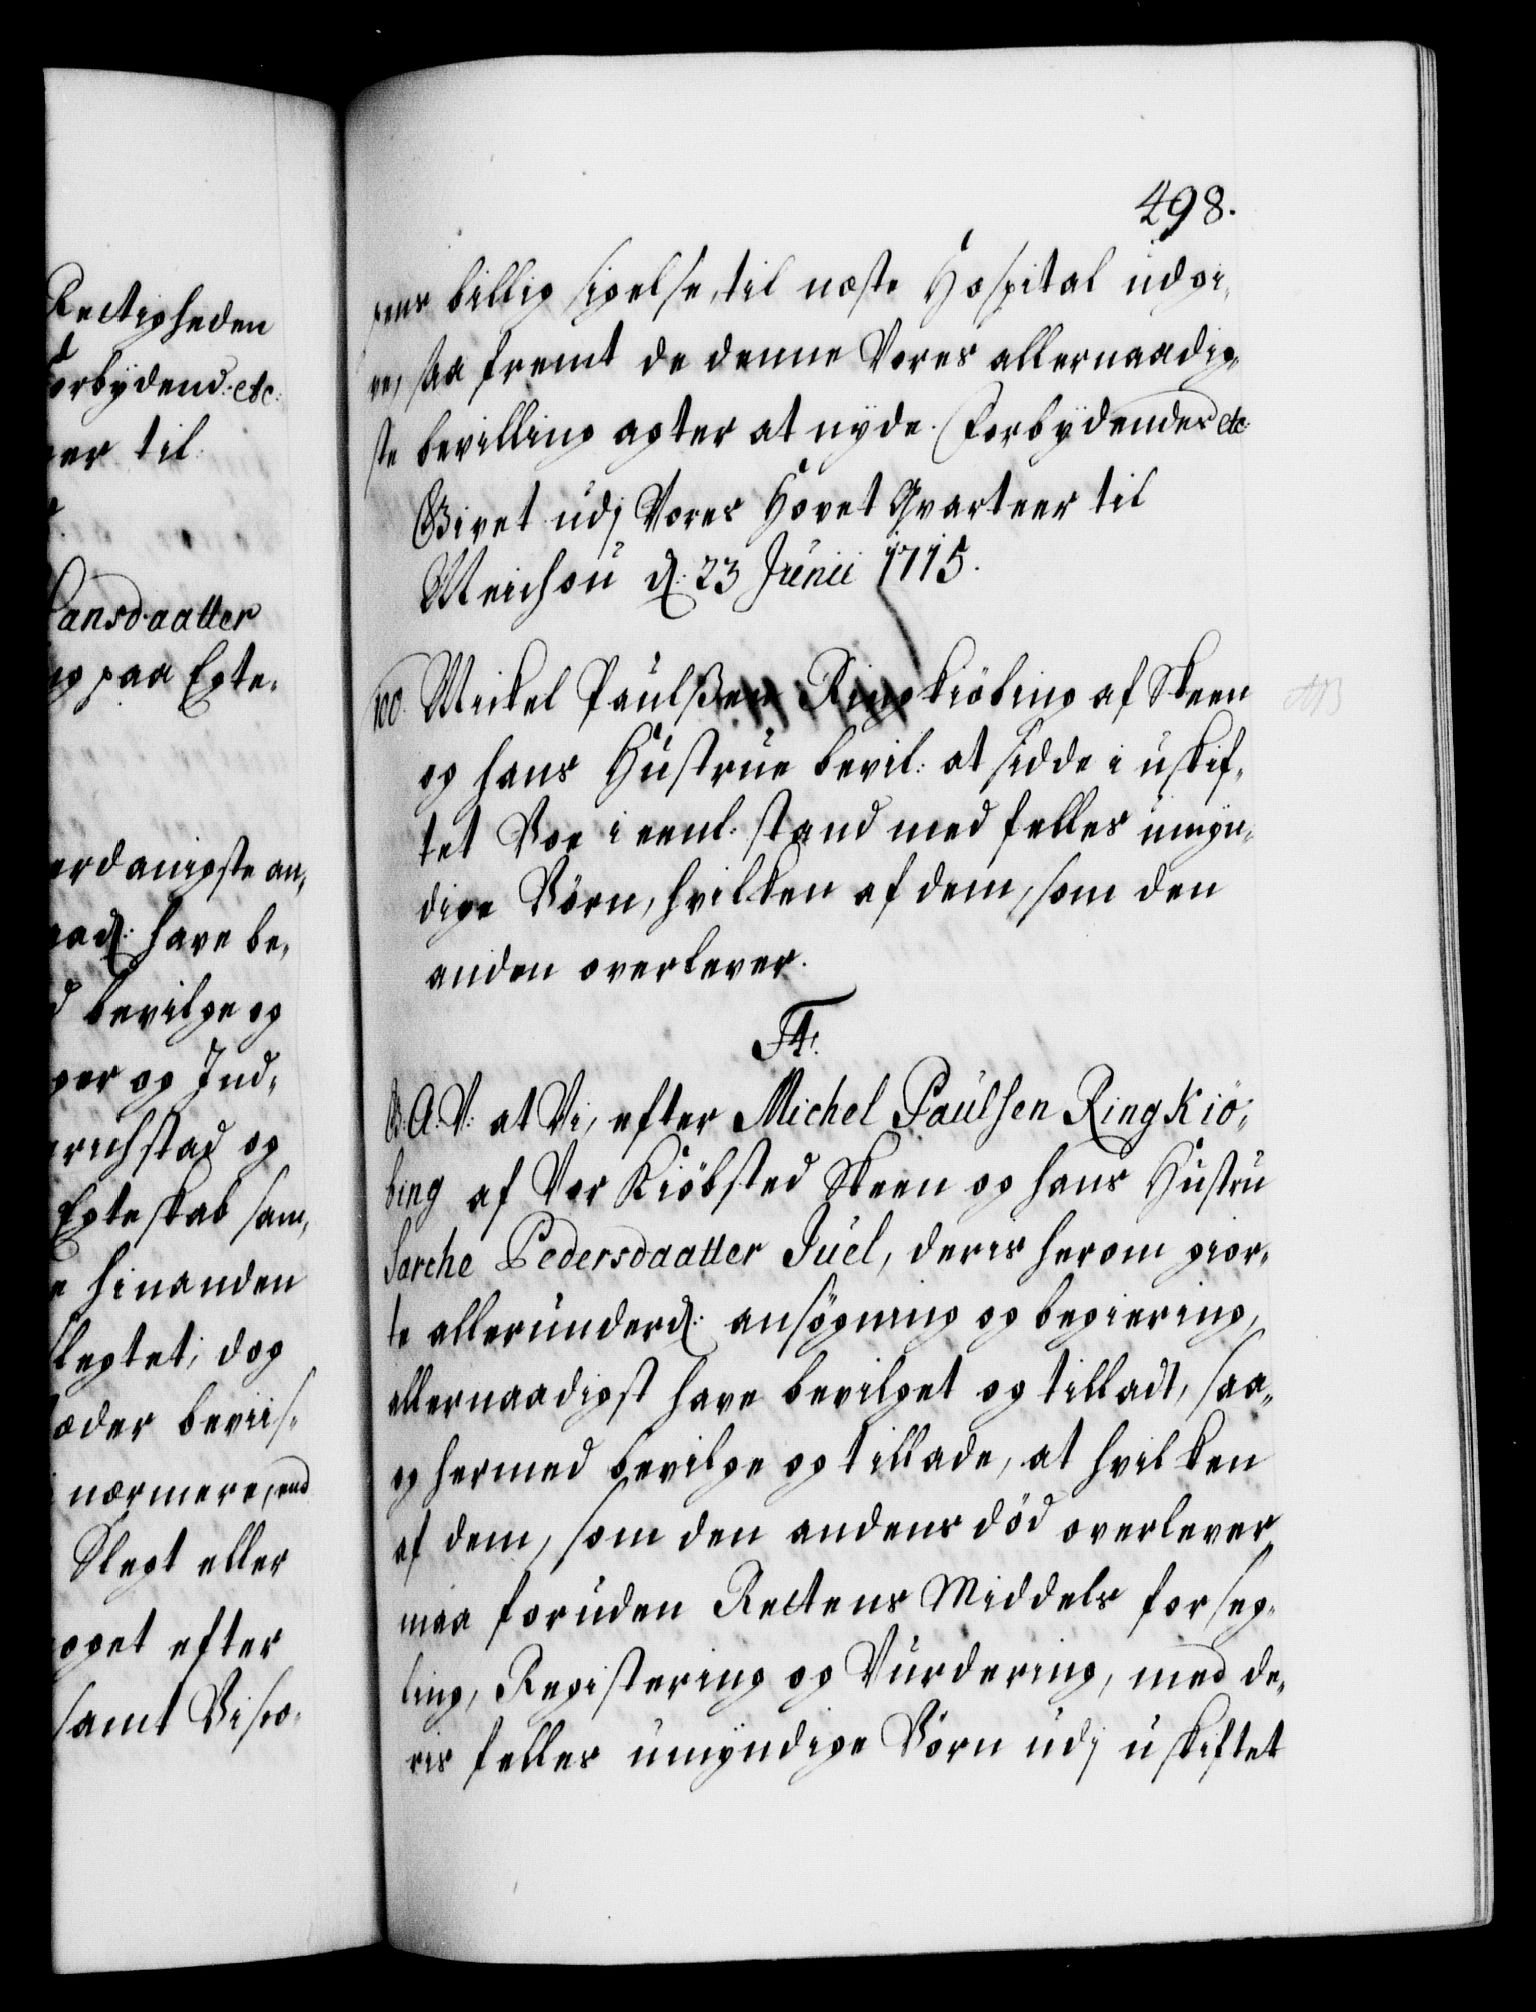 Rectigheden
orbydend: etc:
er til
ansdaatter
paa Egte-
erdanigste an-
have be-
bevilge og
og Ind-
richstad og
Egteskab sam-
hinanden
slegtet; dog
beviis-
nærmere, end
Slegt eller
efter
samt Vispo-
498.
pens billig sigelse, til næste Hospital udgi-
ve, saa fremt de denne Vores allernaadig-
ste bevilling agter at nyde. Forbydendes etc
Givet udj Vores Hovet Qvarteer til
Weichou d: 23 Junii 1715.
100. Mickel Paulßen Ringkiöbing af Skeen
og hans Hustrue bevil: at sidde i uskif-
tet Boe i eenl: stand med felles umyn-
dige Börn, hvilken af dem, som den
anden overlever.
F4.
G: A: V: at Vi, efter Michel Paulsen Ringkiö-
bing af Vor Kiöbsted Skeen og hans Hustru
Sarche Pedersdaatter Juel, deris herom gior-
te allerunderd: ansögning og begiering,
allernaadigst have bevilget og tilladt, saa-
og hermed bevilge og tillade, at hvilken
af dem, som den andens död overlever
maa foruden Rettens Middels forseg-
ling, Registering og Vurdering, med de-
ris felles umyndige Börn udj uskiftet